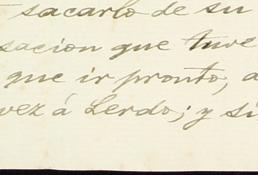 sacarlo de su
sacion que tuve
que ir pronto, a
vez á Lerdo; y si